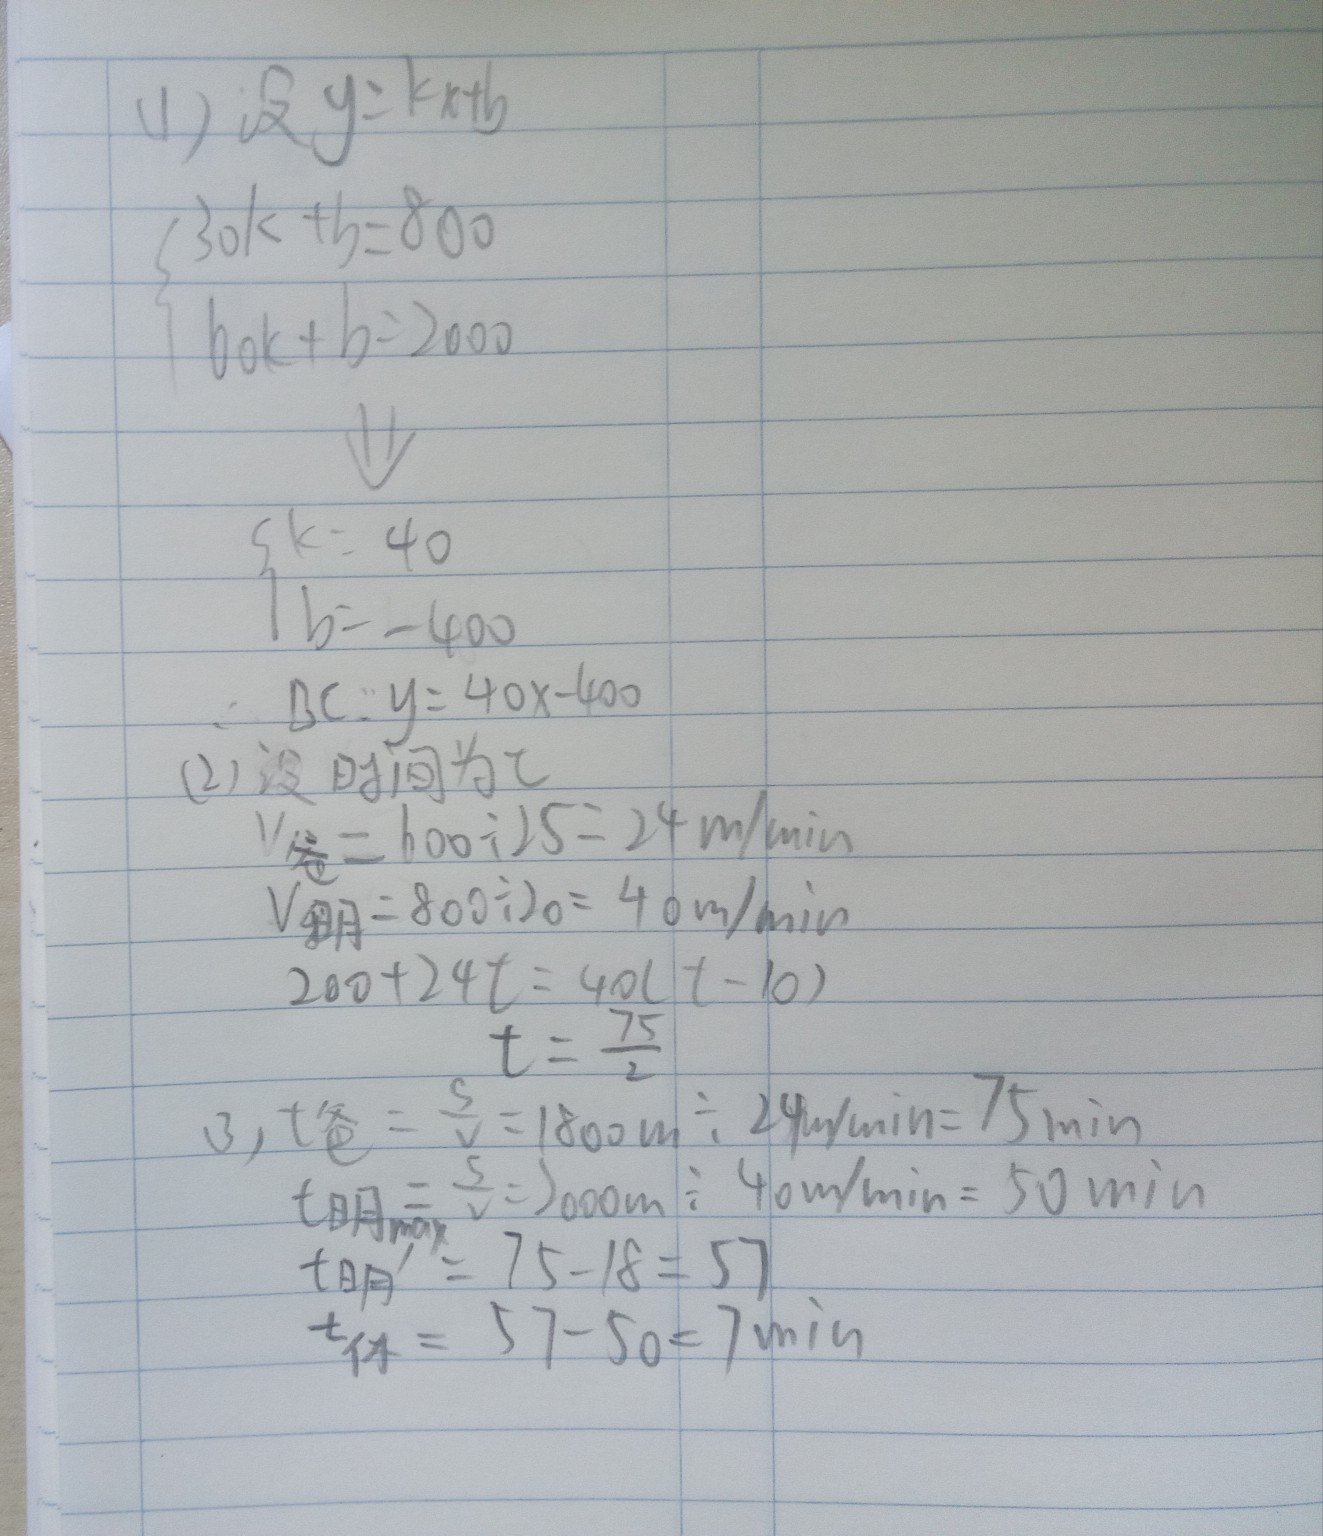 (1) 设 y=kx+b
{30k+b=800
60k+b=2000
⇓
{k=40
b=-400
∴ BC:y=40x-400
(2)设时间为t
V爸=600÷25=24m/min
V明=800÷20=40m/min
200+24t=40(t-10)
t=75/2
(3)t爸=s/v=1800m÷24m/min=75min
t明max=s/v=2000m÷40m/min=50min
t明'=75-18=57
t休=57-50=7min